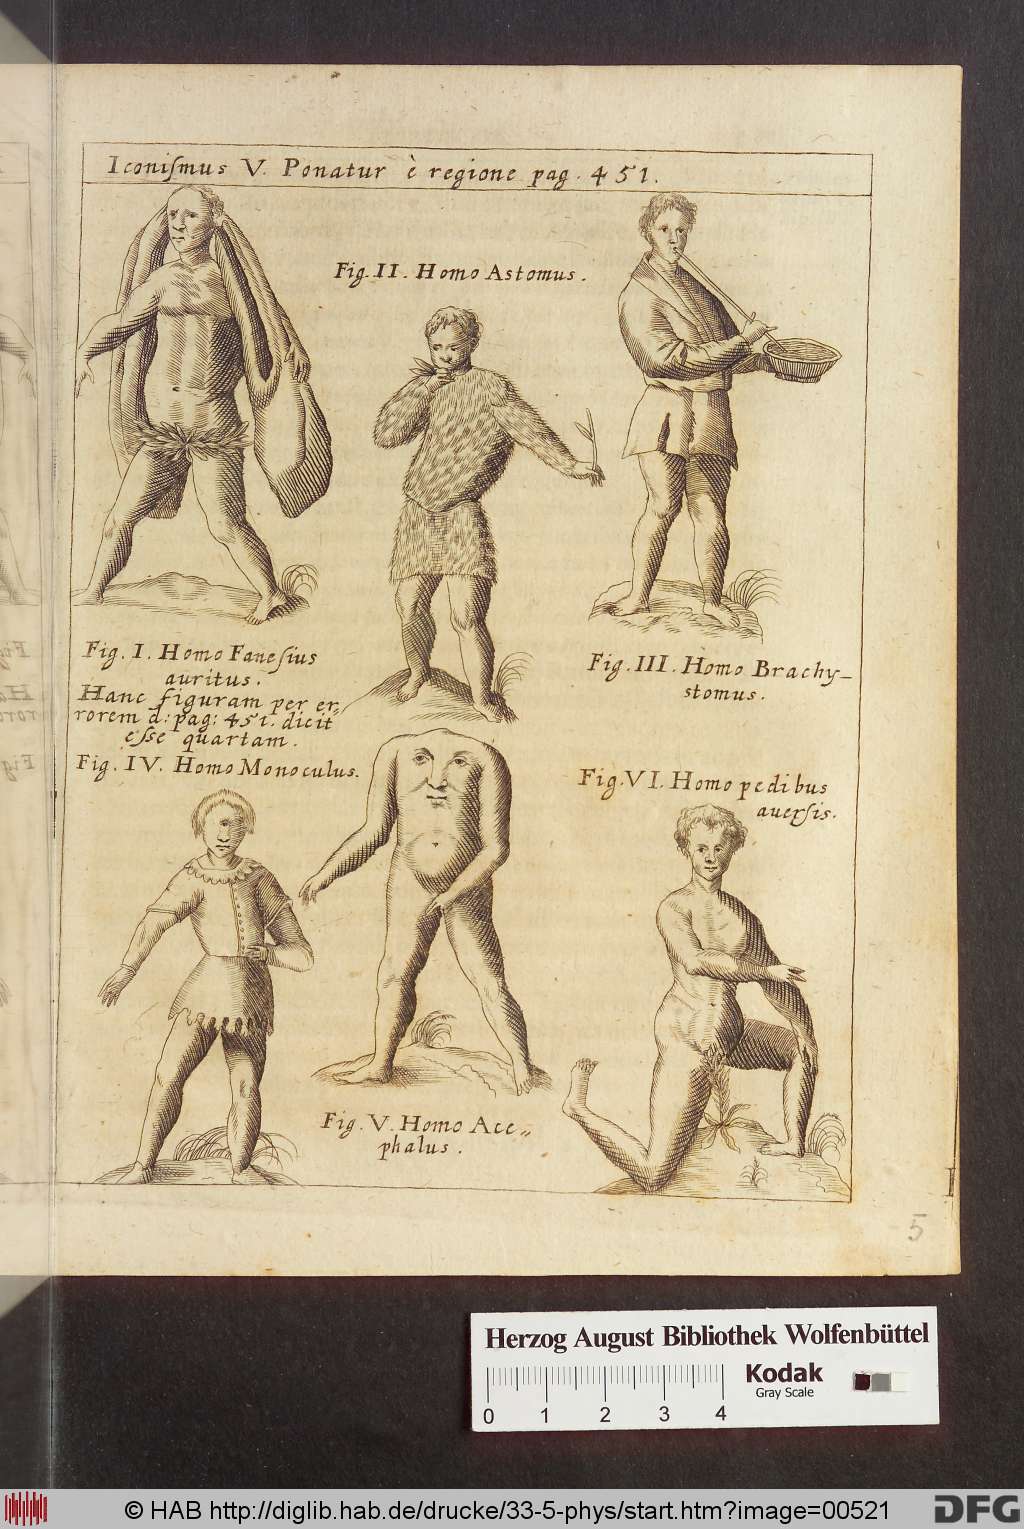 Iconiſmus V. Ponatur è regione pag. 451.
Fig. II. Homo Astomus.
Fig. I. Homo Faneſius
auritus.
Hanc figuram per er,
rorem d: pag: 451. dicit
eſse quartam.
Fig. III. Homo Brachy–
stomus.
Fig. IV. Homo Monoculus.
Fig. VI. Homo pedibus
auerſis.
Fig. V. Homo Ace„
phalus.
5
Herzog August Bibliothek Wolfenbüttel
Kodak
Gray Scale
0 1 2 3 4
© HAB http://diglib.hab.de/drucke/33-5-phys/start.htm?image=00521
DFG